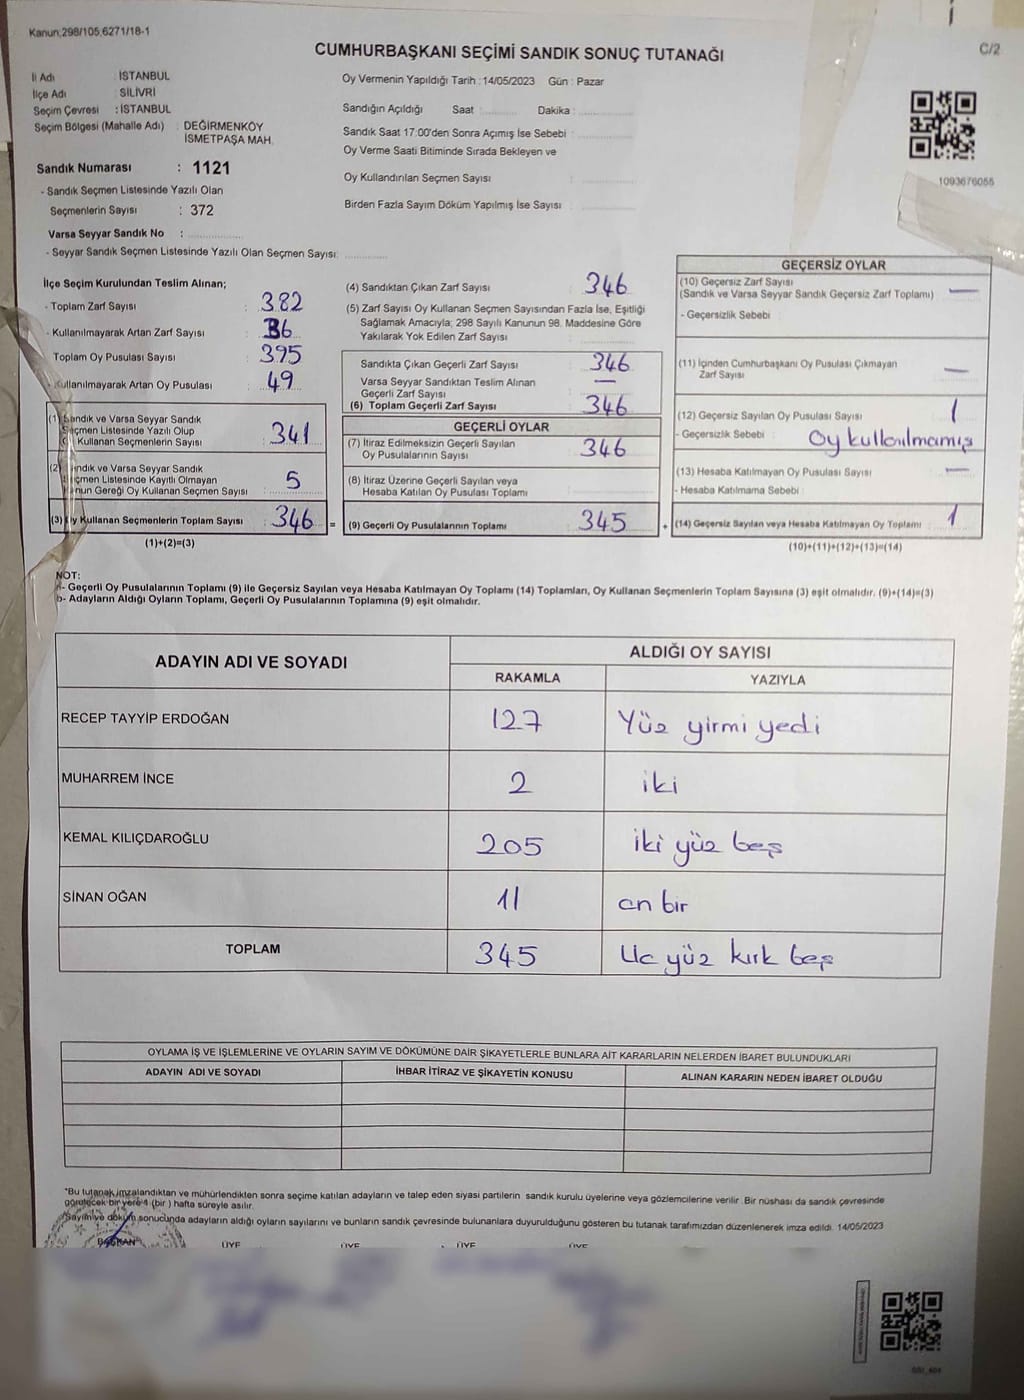 Kanun;298/105;6271/18-1
C/2
CUMHURBAŞKANI SEÇİMİ SANDIK SONUÇ TUTANAĞI
İl Adı : İSTANBUL
İlçe Adı : SİLİVRİ
Seçim Çevresi : İSTANBUL
Seçim Bölgesi (Mahalle Adı) : DEĞİRMENKÖY
İSMETPAŞA MAH.
Sandık Numarası : 1121
- Sandık Seçmen Listesinde Yazılı Olan
Seçmenlerin Sayısı : 372
Varsa Seyyar Sandık No :
- Seyyar Sandık Seçmen Listesinde Yazılı Olan Seçmen Sayısı:
Oy Vermenin Yapıldığı Tarih : 14/05/2023 Gün : Pazar
Sandığın Açıldığı Saat Dakika :
Sandık Saat 17:00'den Sonra Açımış İse Sebebi :
Oy Verme Saati Bitiminde Sırada Bekleyen ve
Oy Kullandırılan Seçmen Sayısı :
Birden Fazla Sayım Döküm Yapılmış İse Sayısı :
1093676055
İlçe Seçim Kurulundan Teslim Alınan;
- Toplam Zarf Sayısı : 382
- Kullanılmayarak Artan Zarf Sayısı : 36
Toplam Oy Pusulası Sayısı : 395
- Kullanılmayarak Artan Oy Pusulası : 49
(1) Sandık ve Varsa Seyyar Sandık
Seçmen Listesinde Yazılı Olup
Kullanan Seçmenlerin Sayısı : 341
(2) Sandık ve Varsa Seyyar Sandık
Seçmen Listesinde Kayıtlı Olmayan
Kanun Gereği Oy Kullanan Seçmen Sayısı : 5
(3) Oy Kullanan Seçmenlerin Toplam Sayısı : 346 =
(1)+(2)=(3)
(4) Sandıktan Çıkan Zarf Sayısı : 346
(5) Zarf Sayısı Oy Kullanan Seçmen Sayısından Fazla İse, Eşitliği
Sağlamak Amacıyla; 298 Sayılı Kanunun 98. Maddesine Göre
Yakılarak Yok Edilen Zarf Sayısı :
Sandıkta Çıkan Geçerli Zarf Sayısı : 346
Varsa Seyyar Sandıktan Teslim Alınan
Geçerli Zarf Sayısı : —
(6) Toplam Geçerli Zarf Sayısı : 346
GEÇERLİ OYLAR
(7) İtiraz Edilmeksizin Geçerli Sayılan
Oy Pusulalarının Sayısı : 346
(8) İtiraz Üzerine Geçerli Sayılan veya
Hesaba Katılan Oy Pusulası Toplamı :
(9) Geçerli Oy Pusulalarının Toplamı : 345 +
GEÇERSİZ OYLAR
(10) Geçersiz Zarf Sayısı
(Sandık ve Varsa Seyyar Sandık Geçersiz Zarf Toplamı) : —
- Geçersizlik Sebebi :
(11) İçinden Cumhurbaşkanı Oy Pusulası Çıkmayan
Zarf Sayısı : —
(12) Geçersiz Sayılan Oy Pusulası Sayısı : 1
- Geçersizlik Sebebi : Oy kullanılmamış
(13) Hesaba Katılmayan Oy Pusulası Sayısı : —
- Hesaba Katılmama Sebebi :
(14) Geçersiz Sayılan veya Hesaba Katılmayan Oy Toplamı : 1
(10)+(11)+(12)+(13)=(14)
NOT:
a- Geçerli Oy Pusulalarının Toplamı (9) ile Geçersiz Sayılan veya Hesaba Katılmayan Oy Toplamı (14) Toplamları, Oy Kullanan Seçmenlerin Toplam Sayısına (3) eşit olmalıdır. (9)+(14)=(3)
b- Adayların Aldığı Oyların Toplamı, Geçerli Oy Pusulalarının Toplamına (9) eşit olmalıdır.
ADAYIN ADI VE SOYADI ALDIĞI OY SAYISI
RAKAMLA YAZIYLA
RECEP TAYYİP ERDOĞAN 127 Yüz yirmi yedi
MUHARREM İNCE 2 iki
KEMAL KILIÇDAROĞLU 205 iki yüz beş
SİNAN OĞAN 11 on bir
TOPLAM 345 Uc yüz kırk beş
OYLAMA İŞ VE İŞLEMLERİNE VE OYLARIN SAYIM VE DÖKÜMÜNE DAİR ŞİKAYETLERLE BUNLARA AİT KARARLARIN NELERDEN İBARET BULUNDUKLARI
ADAYIN ADI VE SOYADI İHBAR İTİRAZ VE ŞİKAYETİN KONUSU ALINAN KARARIN NEDEN İBARET OLDUĞU
*Bu tutanak imzalandıktan ve mühürlendikten sonra seçime katılan adayların ve talep eden siyasi partilerin sandık kurulu üyelerine veya gözlemcilerine verilir. Bir nüshası da sandık çevresinde
görülecek bir yere 1 (bir) hafta süreyle asılır.
*Sayım ve döküm sonucunda adayların aldığı oyların sayılarını ve bunların sandık çevresinde bulunanlara duyurulduğunu gösteren bu tutanak tarafımızdan düzenlenerek imza edildi. 14/05/2023
BAŞKAN ÜYE ÜYE ÜYE ÜYE